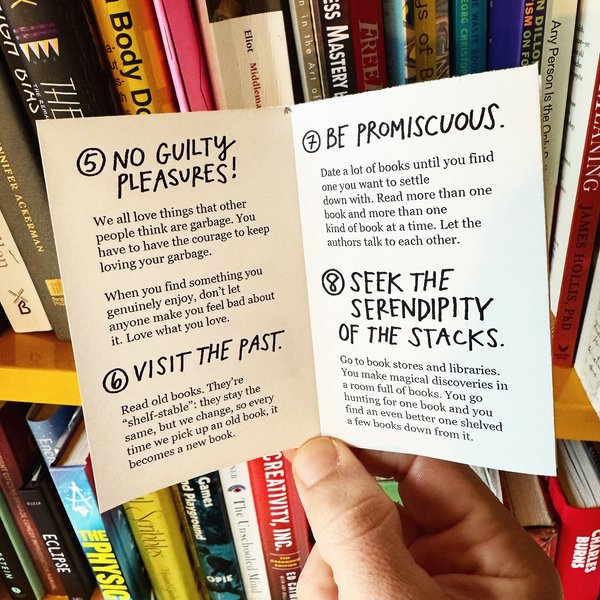 ⑤ NO GUILTY
PLEASURES!
We all love things that other
people think are garbage. You
have to have the courage to keep
loving your garbage.
When you find something you
genuinely enjoy, don't let
anyone make you feel bad about
it. Love what you love.
⑥ VISIT THE PAST.
Read old books. They're
"shelf-stable": they stay the
same, but we change, so every
time we pick up an old book, it
becomes a new book.
⑦ BE PROMISCUOUS.
Date a lot of books until you find
one you want to settle
down with. Read more than one
book and more than one
kind of book at a time. Let the
authors talk to each other.
⑧ SEEK THE
SERENDIPITY
OF THE STACKS.
Go to book stores and libraries.
You make magical discoveries in
a room full of books. You go
hunting for one book and you
find an even better one shelved
a few books down from it.
JENNIFER ACKERMAN
THE
Body
Eliot
Middlemarch
in the Art of
MASTERY
Any Person Is the Only
JAMES HOLLIS, PhD
ECLIPSE
Scribbles
Games
and Playground
OPIE
The Unschooled Mind
CREATIVITY, INC.
CHARLES
BURNS